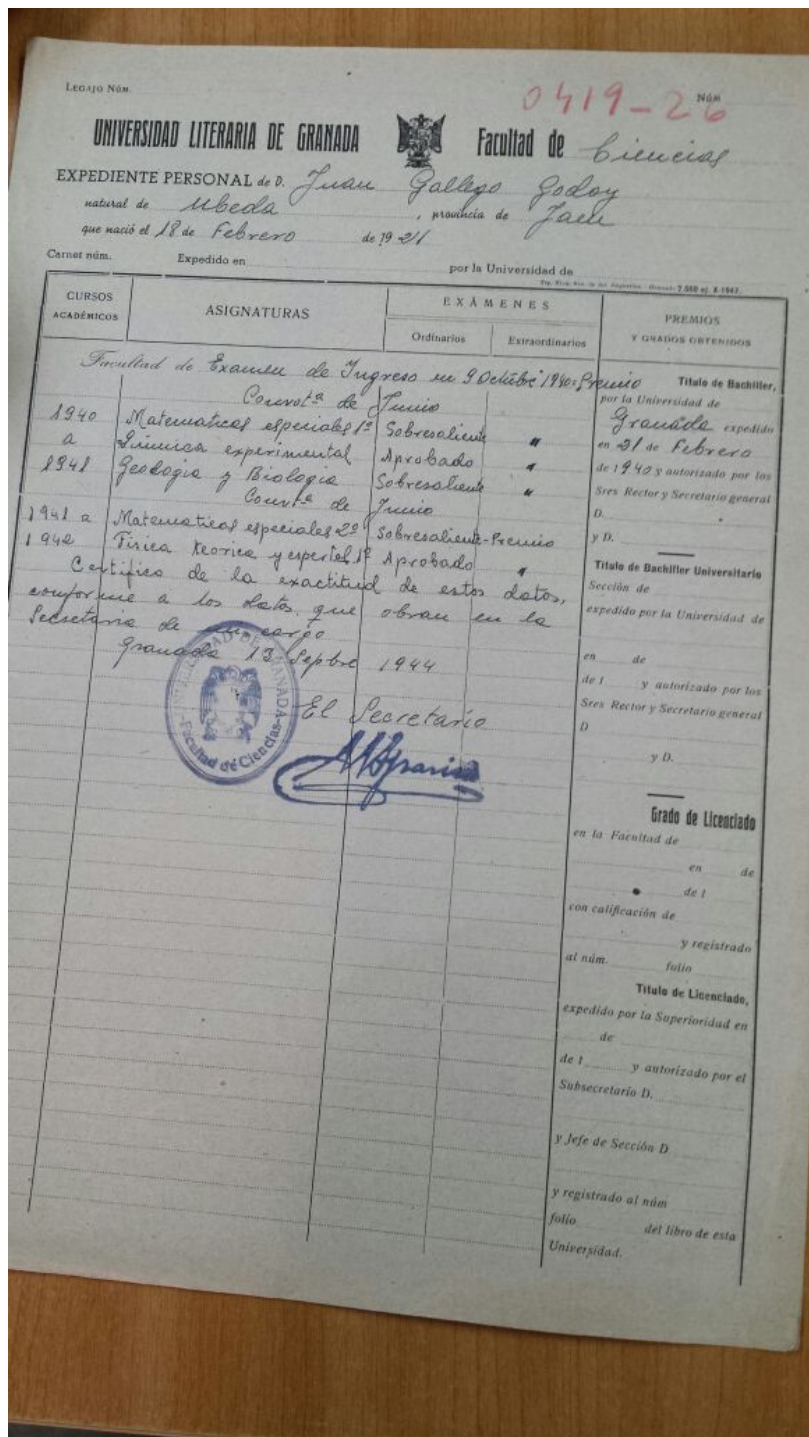 LEGAJO NÚM.
0419-26
NÚM.
UNIVERSIDAD LITERARIA DE GRANADA Facultad de Ciencias
EXPEDIENTE PERSONAL de D. Juan Gallego Godoy
natural de Ubeda, provincia de Jaen
que nació el 18 de Febrero de 1921
Carnet núm. Expedido en por la Universidad de
2.500 ej. 8-1947.
CURSOS ACADÉMICOS
ASIGNATURAS
EXÁMENES
Ordinarios Extraordinarios
PREMIOS
Y GRADOS OBTENIDOS
Facultad de Examen de Ingreso en 9 Octubre 1940 = Premio
Convotª de Junio
1940 Matematicas especiales 1º Sobresaliente "
a Quimica experimental Aprobado "
1941 Geologia y Biologia Sobresaliente "
Convtª de Junio
1941 a Matematicas especiales 2º Sobresaliente-Premio
1942 Fisica teorica y expertel. 1º Aprobado "
Certifico de la exactitud de estos datos,
conforme a los datos que obran en la
Secretaria de mi cargo
Granada 13 Sepbre 1944
El Secretario
UNIVERSIDAD DE GRANADA
Facultad de Ciencias
Titulo de Bachiller,
por la Universidad de
Granada expedido
en 21 de Febrero
de 1940 y autorizado por los
Sres Rector y Secretario general
D.
y D.
Titulo de Bachiller Universitario
Sección de
expedido por la Universidad de
en de
de 1 y autorizado por los
Sres Rector y Secretario general
D
y D.
Grado de Licenciado
en la Facultad de
en de
de 1
con calificación de
y registrado
al núm. folio
Titulo de Licenciado,
expedido por la Superioridad en
de
de 1 y autorizado por el
Subsecretario D.
y Jefe de Sección D
y registrado al núm
folio del libro de esta
Universidad.